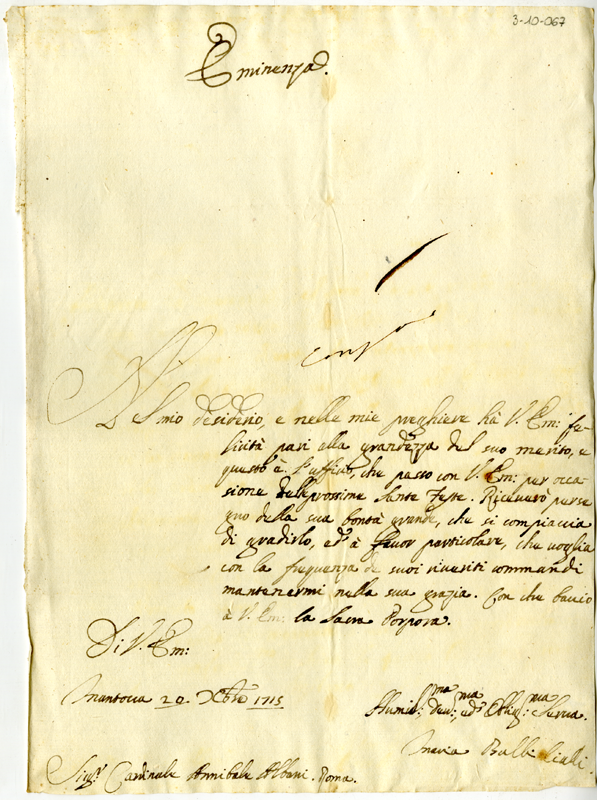 3-10-067
Eminenza.
Nel mio desiderio, e nelle mie preghiere hà V. Em: fe-
licità pari alla grandezza del suo merito, e
questo è l'uffizio, che passo con V. Em: per occa-
sione delle prossime Sante Feste. Riceverò per se
gno della sua bontà grande, che si compiaccia
di gradirlo, ed à favor particolare, che voglia
con la frequenza de suoi riveriti commandi
mantenermi nella sua grazia. Con che baccio
à V. Em: la Sacra Porpora.
Di V. Em:
Mantova 20. Xbre 1715
Humil:ma dev:ma ed Oblig:ma Serva
Maria Balbi
Sigr. Cardinale Annibale Albani. Roma.